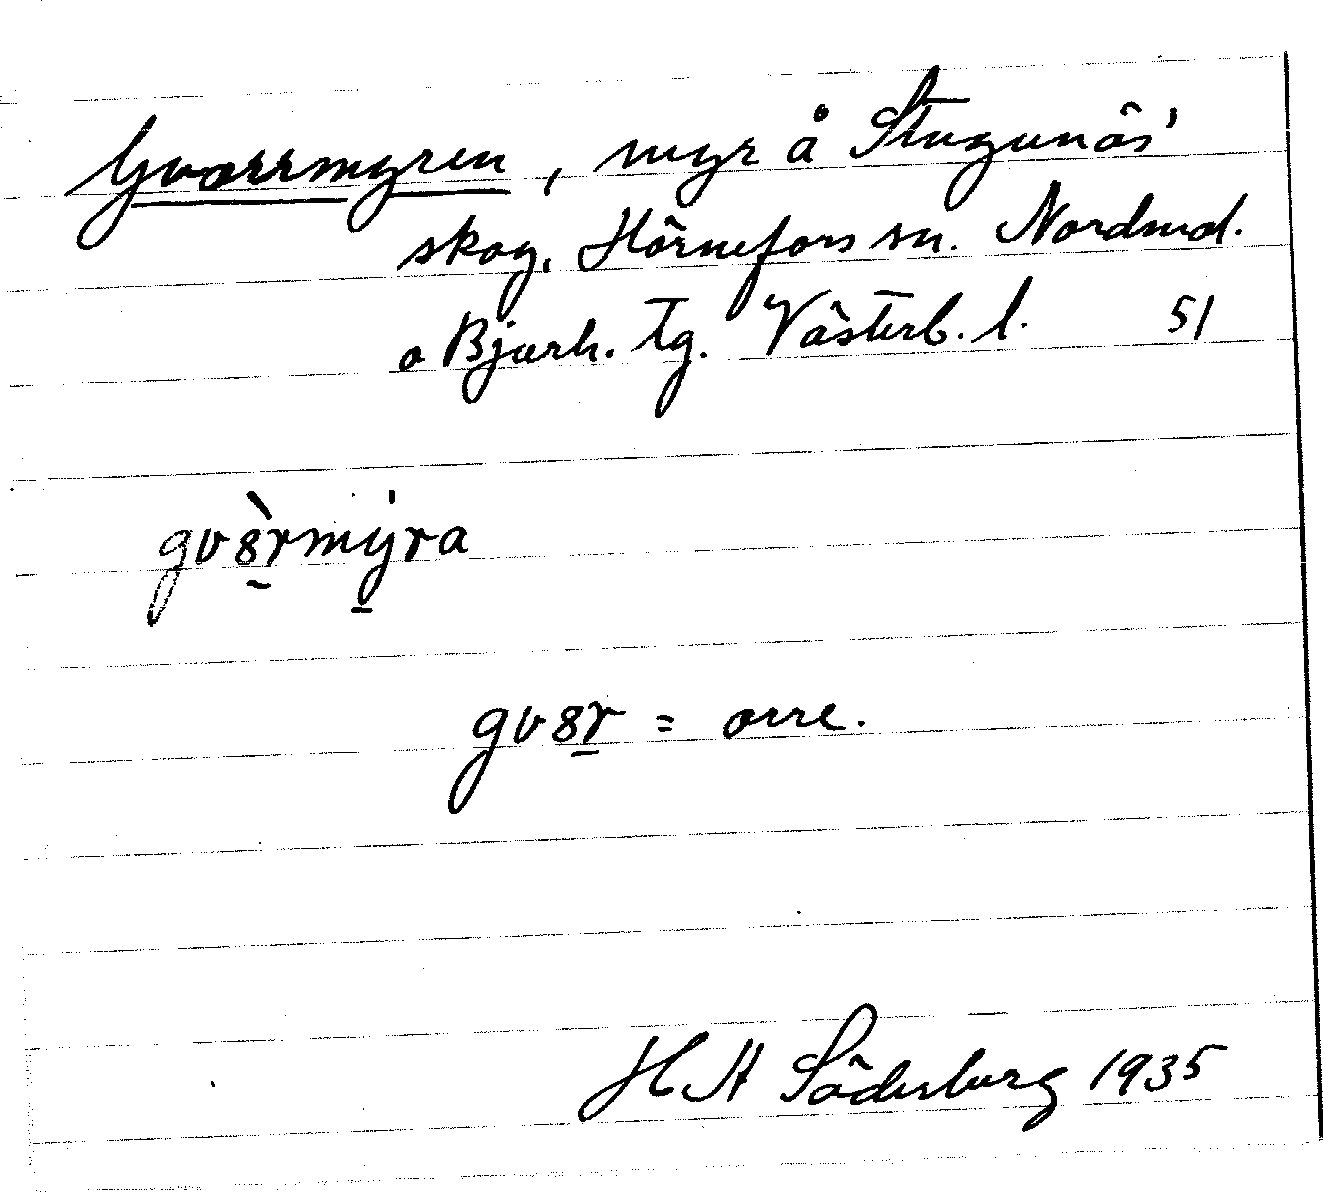 Gvorrmyren, myr å Stugunäs'
skog, Hörnefors sn. Nordmal.
o Bjurh. tg. Västerb. l. 51
gv8̀rmýra
gv8r = orre.
H A Söderberg 1935